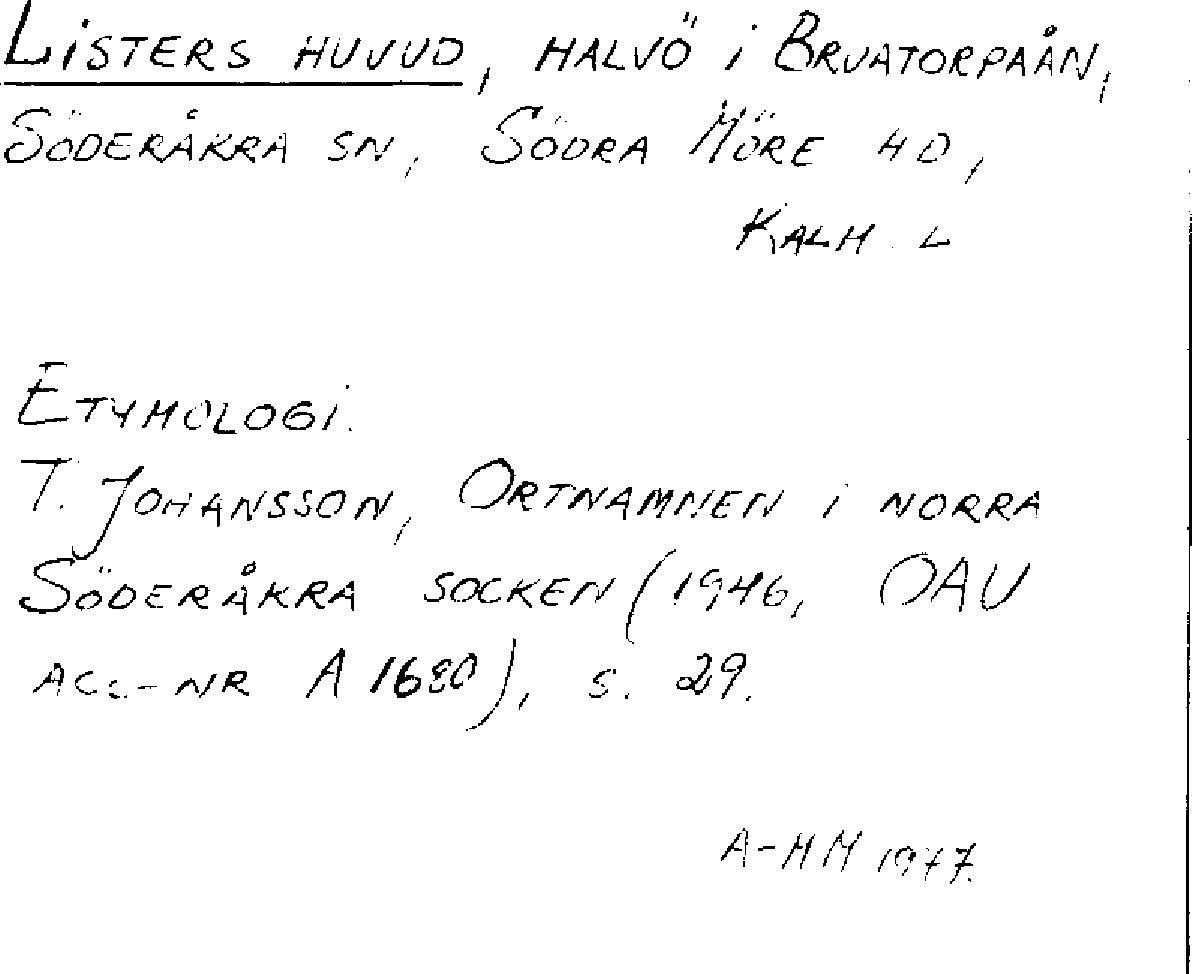 LISTERS HUVUD, HALVÖ I BRUATORPAÅN,
SÖDERÅKRA SN, SÖDRA MÖRE HD,
KALM. L
ETYMOLOGI.
T. JOHANSSON, ORTNAMNEN I NORRA
SÖDERÅKRA SOCKEN (1946, OAU
ACC-NR A 1680), S. 29.
A-MM 1947.